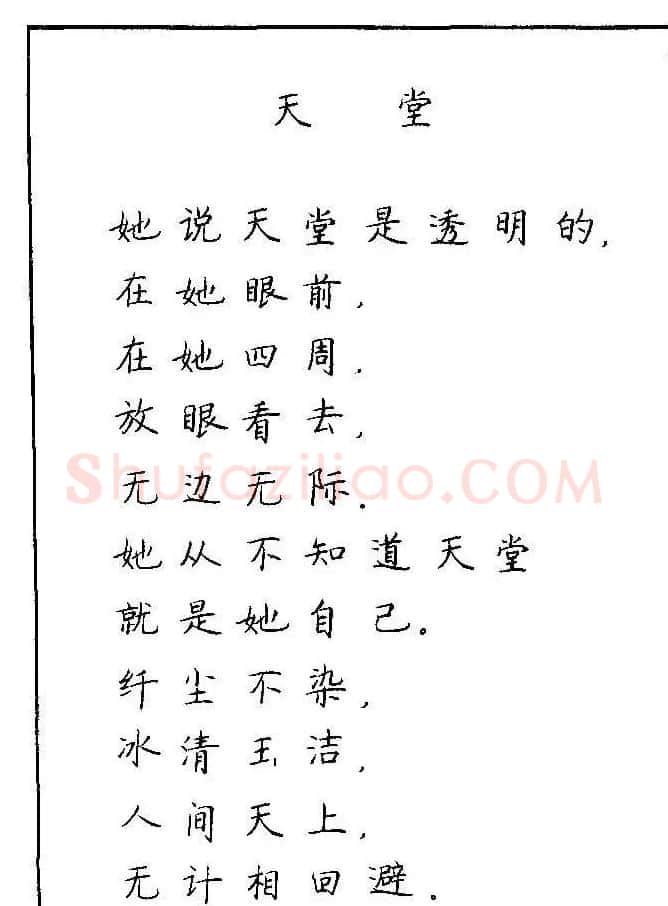 天 堂
她说天堂是透明的,
在她眼前,
在她四周,
放眼看去,
无边无际.
Shufaziliao.COM
她从不知道天堂
就是她自己。
纤尘不染,
冰清玉洁,
人间天上,
无计相回避.